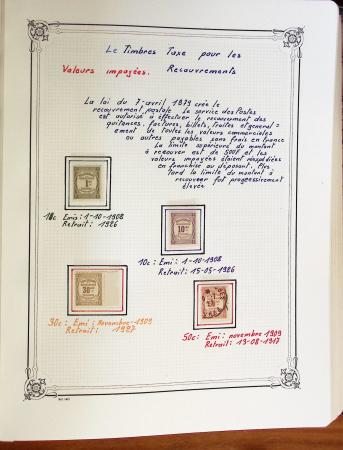 Le Timbres Taxe pour les
Valeurs impayées. Recouvrements
La loi du 7 avril 1879 crée le
recouvrement postale. Le service des Postes
est autorisé à effectuer le recouvrement des
quitances, factures, billets, traites et général =
ement de toutes les valeurs commerciales
ou autres payables sans frais en france
La limite supérieure du montant
à recouvrer est de 500F et les
valeurs impayées étaient réexpédiées
en franchise au déposant. Plus
tard la limite du montant à
recouvrer fut progressivement
élevée.
1c
10c. Emis: 1-10-1908
Retrait: 1926
10c
10c: Emi: 1-10-1908
Retrait: 15-05-1926
30c
30c: Emi: Novembre-1909
Retrait: 1927
50c: Emi: novembre 1909
Retrait: 13-08-1917